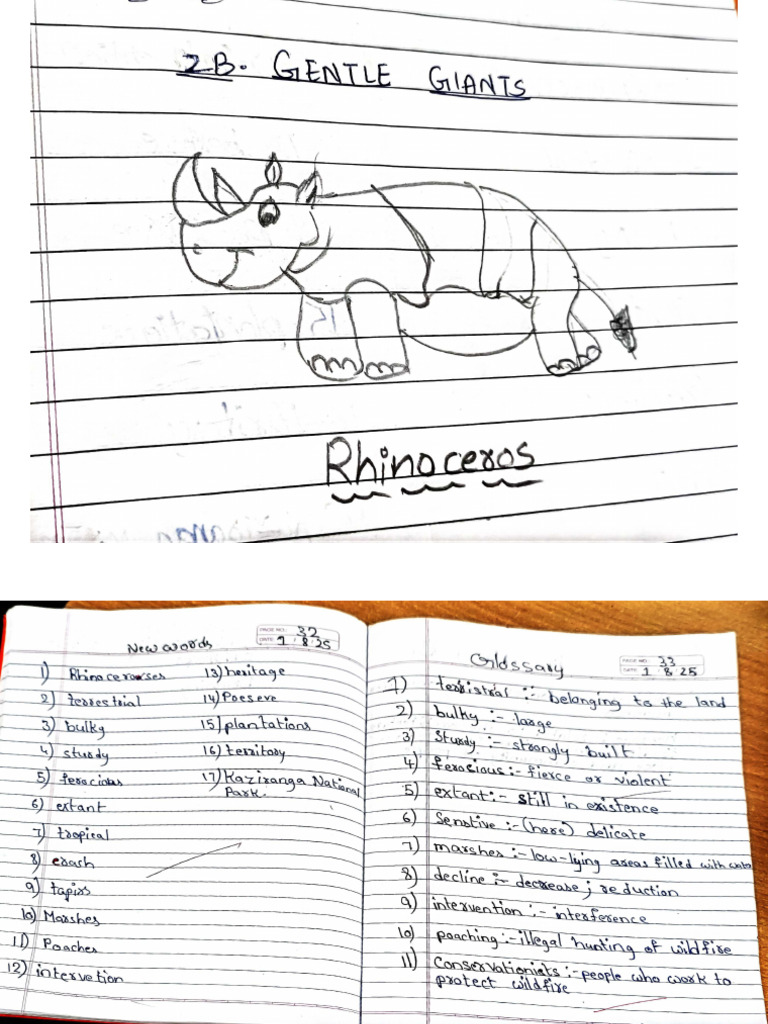 2B. GENTLE GIANTS
Rhinoceros
New words
PAGE NO: 32
DATE: 1 8 25
1) Rhinoceroses
2) terrestrial
3) bulky
4) sturdy
5) ferocious
6) extant
7) tropical
8) crash
9) tapirs
10) Marshes
11) Poaches
12) intervetion
13) heritage
14) Poeseve
15) plantations
16) territory
17) Kaziranga National
Park.
Glossary
PAGE NO: 33
DATE: 1 8 25
1) terristrial :- belonging to the land
2) bulky :- large
3) Sturdy :- strongly built
4) ferocious :- fierce or violent
5) extant :- still in existence
6) Senstive :- (here) delicate
7) marshes :- low-lying areas filled with
8) decline :- decrease ; reduction
9) intervention :- interference
10) poaching :- illegal hunting of wildfire
11) Conservationists :- people who work to
protect wildfire